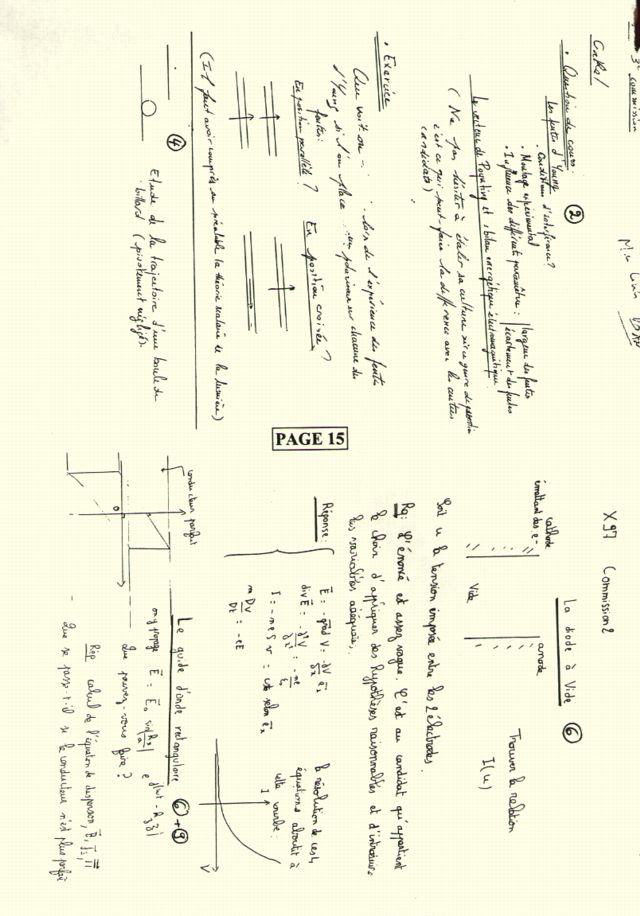 3e commission
• Question de cours:
②
Les fentes d'Young
Conditions d'interférence ?
• Montage expérimental
• Influence des différents paramètres :
largeur des fentes
écartement des fentes
Le vecteur de Poynting et bilan énergétique électromagnétique.
(Ne pas hésiter à étaler sa culture sur ce genre de question
c'est ce qui peut faire la différence avec les autres
candidats)
• Exercice
Que voit-on lors de l'expérience des fentes
d'Young si l'on place un polariseur sur chacune des
fentes:
En position parallèle ?
En position croisée ?
(Il faut avoir compris au préalable la théorie scalaire de la lumière)
④
Etude de la trajectoire d'une boule de
billard (pivotement négligé).
PAGE 15
X 97 Commission 2
La diode à Vide
⑥
cathode
émettant des e-
Vide
anode
Trouver la relation
I(u)
Soit u la tension imposée entre les 2 électrodes.
Rq: L'énoncé est assez vague. C'est au candidat qu'appartient
le choix d'appliquer des hypothèses raisonnables et d'introduire
les variables adéquates.
Réponse:
I = -neSv = cste selon
m Dv/Dt = -eE
la résolution de ces
équations aboutit à
cette courbe:
I
V
Le guide d'onde rectangulaire
⑥+⑨
conducteur parfait
on propage
Que pouvez-vous faire ?
Rep calcul de l'équation de dispersion,
Que se passe-t-il si le conducteur n'est plus parfait